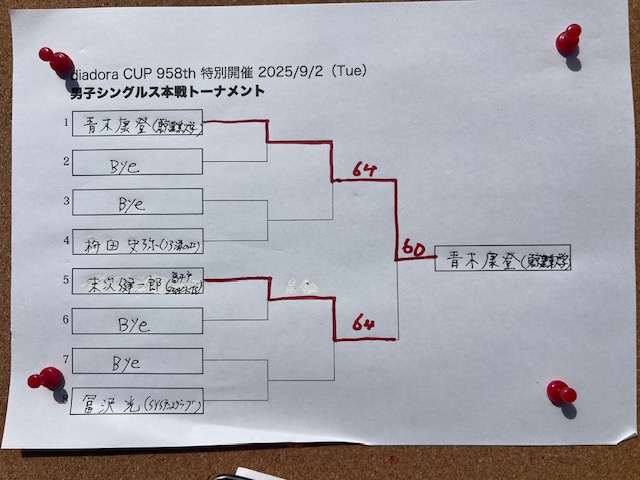 diadora CUP 958th 特別開催 2025/9/2（Tue）
男子シングルス本戦トーナメント
1 青木康登
2 Bye
3 Bye
4 梅田 史弥
5 末次健一郎
6 Bye
7 Bye
8 冨沢 光
64
60
青木康登
64